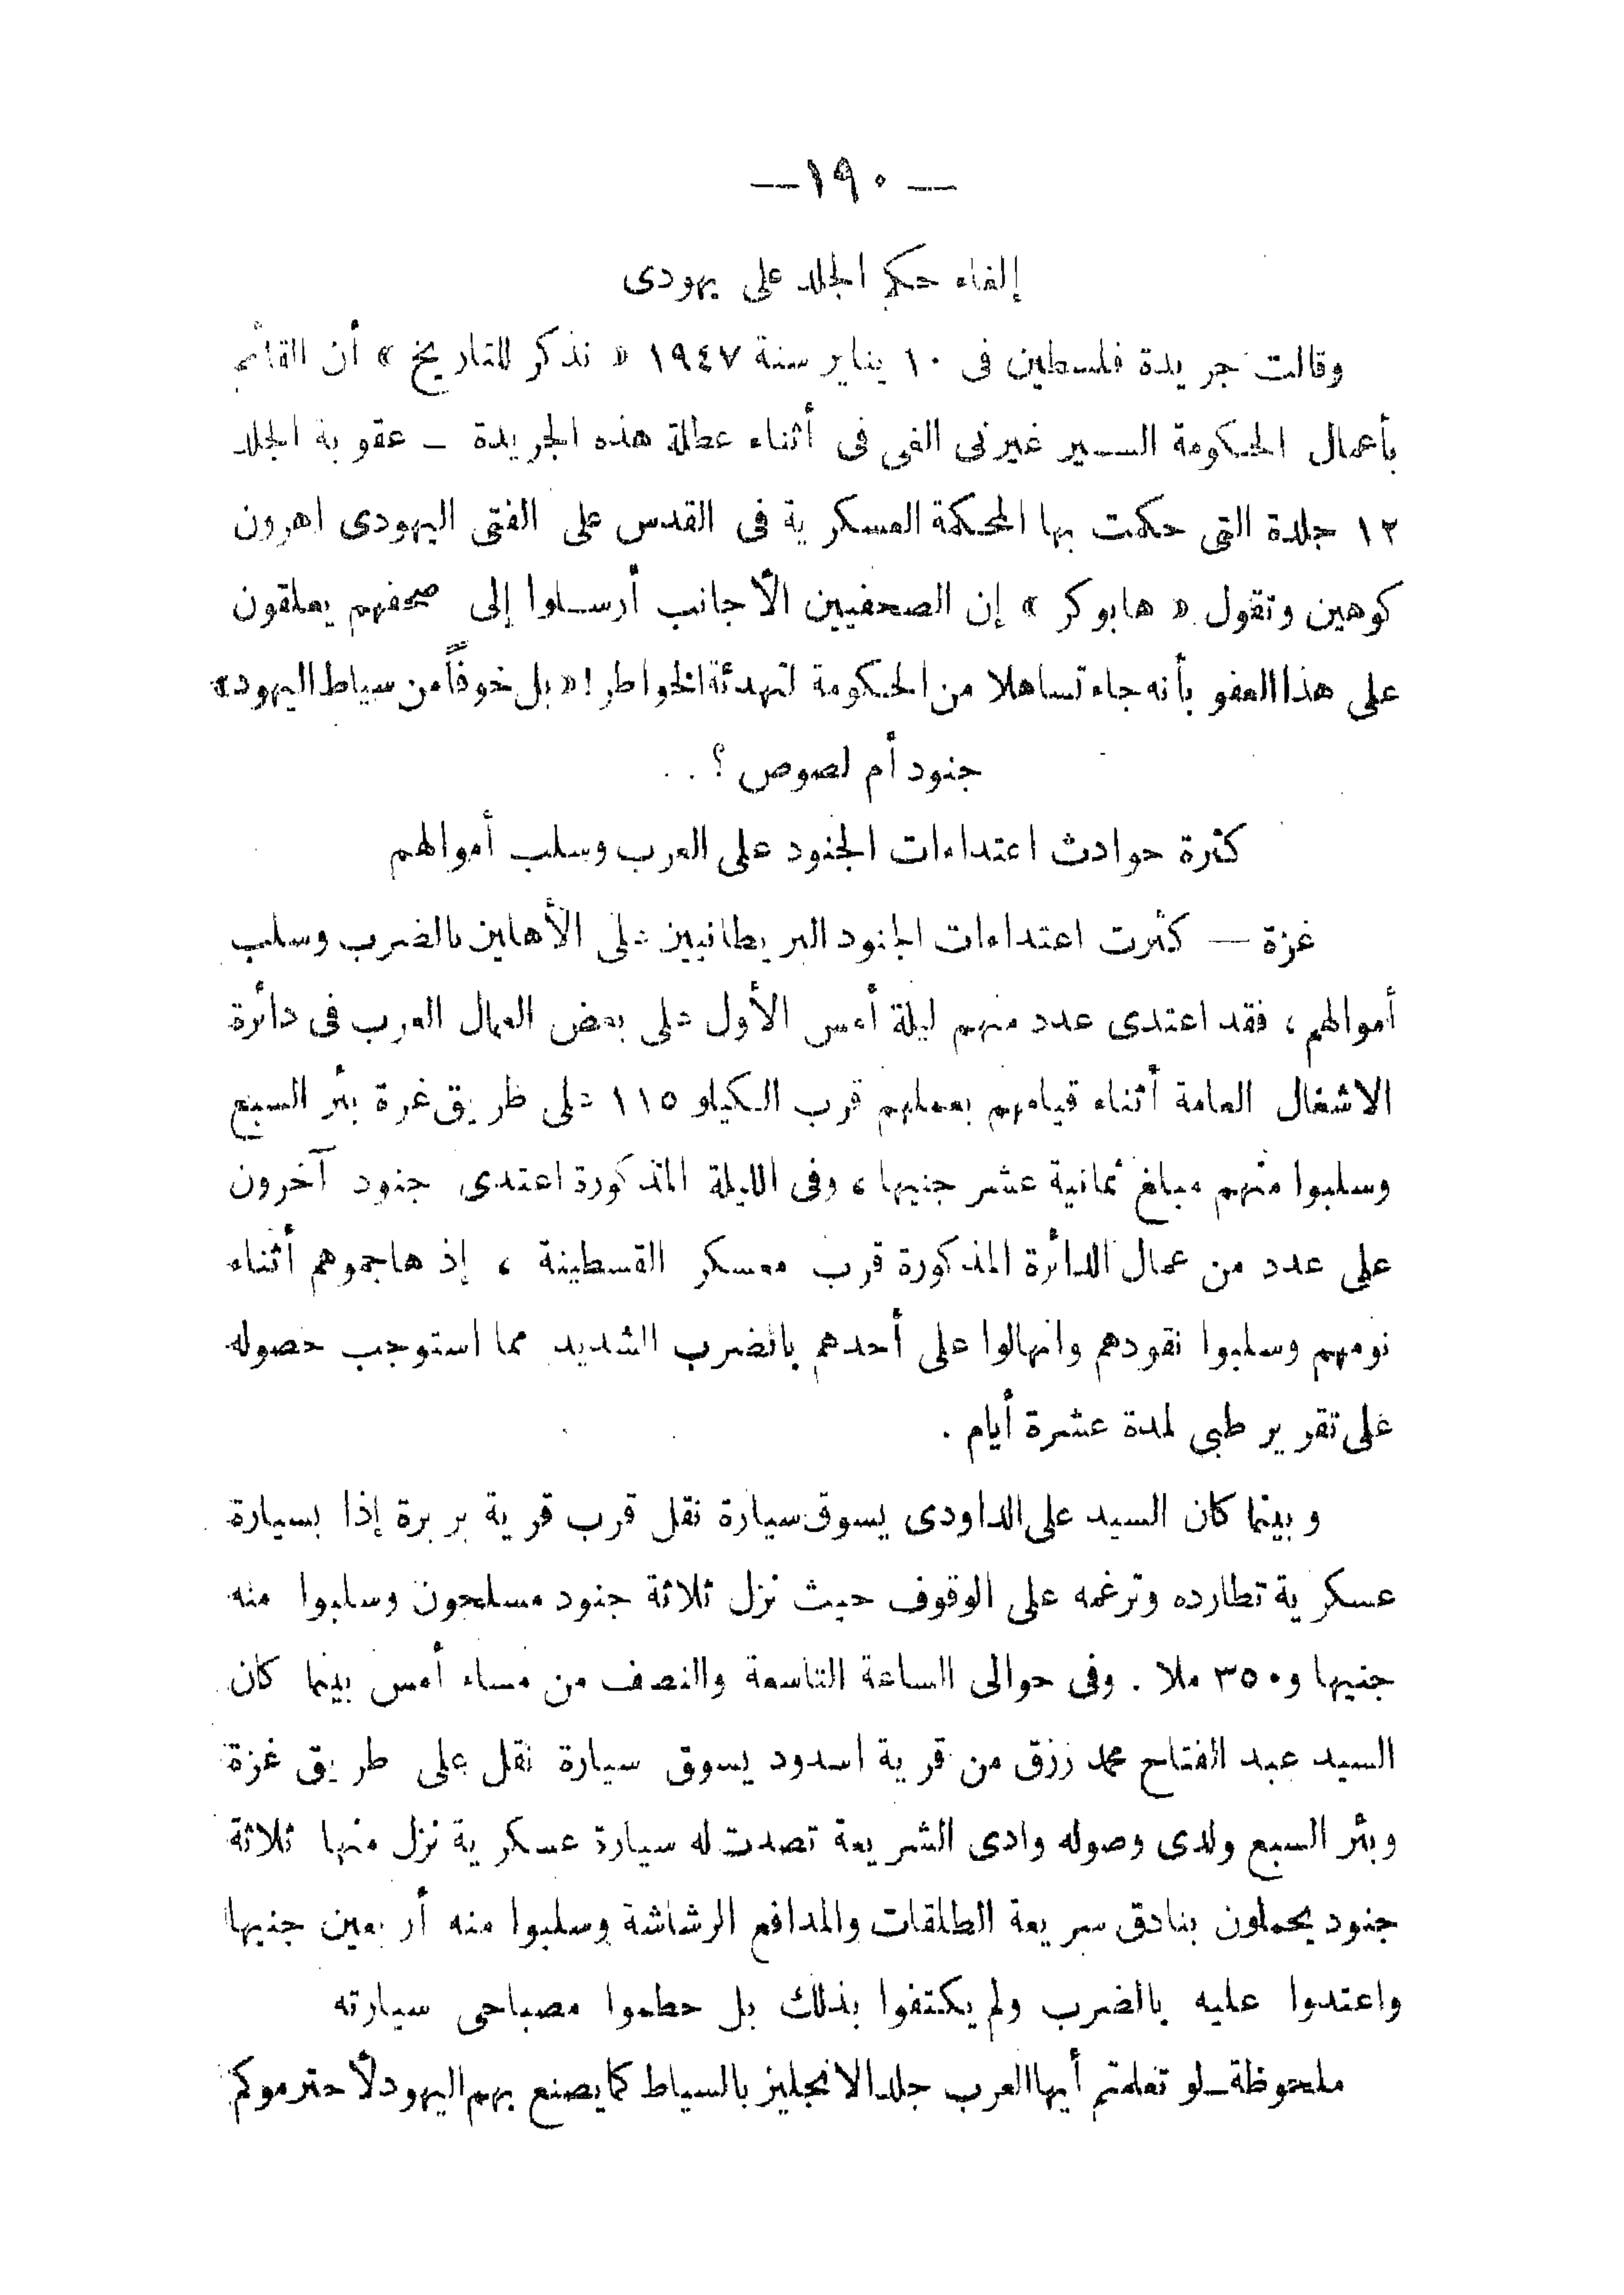 — ١٩٠ —
إلغاء حكم الجلد على يهودى
وقالت جريدة فلسطين فى ١٠ يناير سنة ١٩٤٧ « نذكر للتاريخ » أن القائم
بأعمال الحكومة السير غيرنى الغى فى أثناء عطلة هذه الجريدة – عقوبة الجلد
١٢ جلدة التى حكمت بها المحكمة العسكرية فى القدس على الفتى اليهودى اهرون
كوهين وتقول « هابوكر » إن الصحفيين الأجانب أرسلوا إلى صحفهم يعلقون
على هذا العفو بأنه جاء تساهلا من الحكومة لتهدئة الخواطر ! « بل خوفاً من سياط اليهود »
جنود أم لصوص ؟ . .
كثرة حوادث اعتداءات الجنود على العرب وسلب أموالهم
غزة — كثرت اعتداءات الجنود البريطانيين على الأهلين بالضرب وسلب
أموالهم ، فقد اعتدى عدد منهم ليلة أمس الأول على بعض العمال العرب فى دائرة
الاشغال العامة أثناء قيامهم بعملهم قرب الكيلو ١١٥ على طريق غزة بئر السبع
وسلبوا منهم مبلغ ثمانية عشر جنيها ، وفى الليلة المذكورة اعتدى جنود آخرون
على عدد من عمال الدائرة المذكورة قرب معسكر القسطينة ، إذ هاجموهم أثناء
نومهم وسلبوا نقودهم وانهالوا على أحدهم بالضرب الشديد مما استوجب حصوله
على تقرير طبى لمدة عشرة أيام .
وبينما كان السيد على الداودى يسوق سيارة نقل قرب قرية بربرة إذا بسيارة
عسكرية تطارده وترغمه على الوقوف حيث نزل ثلاثة جنود مسلحون وسلبوا منه
جنيها و٣٥٠ ملا . وفى حوالى الساعة التاسعة والنصف من مساء أمس بينما كان
السيد عبد الفتاح محمد رزق من قرية اسدود يسوق سيارة نقل على طريق غزة
وبئر السبع ولدى وصوله وادى الشريعة تصدت له سيارة عسكرية نزل منها ثلاثة
جنود يحملون بنادق سريعة الطلقات والمدافع الرشاشة وسلبوا منه أربعين جنيها
واعتدوا عليه بالضرب ولم يكتفوا بذلك بل حطموا مصباحى سيارته
ملحوظة – لو تعلمتم أيها العرب جلد الانجليز بالسياط كما يصنع بهم اليهود لأحترموكم